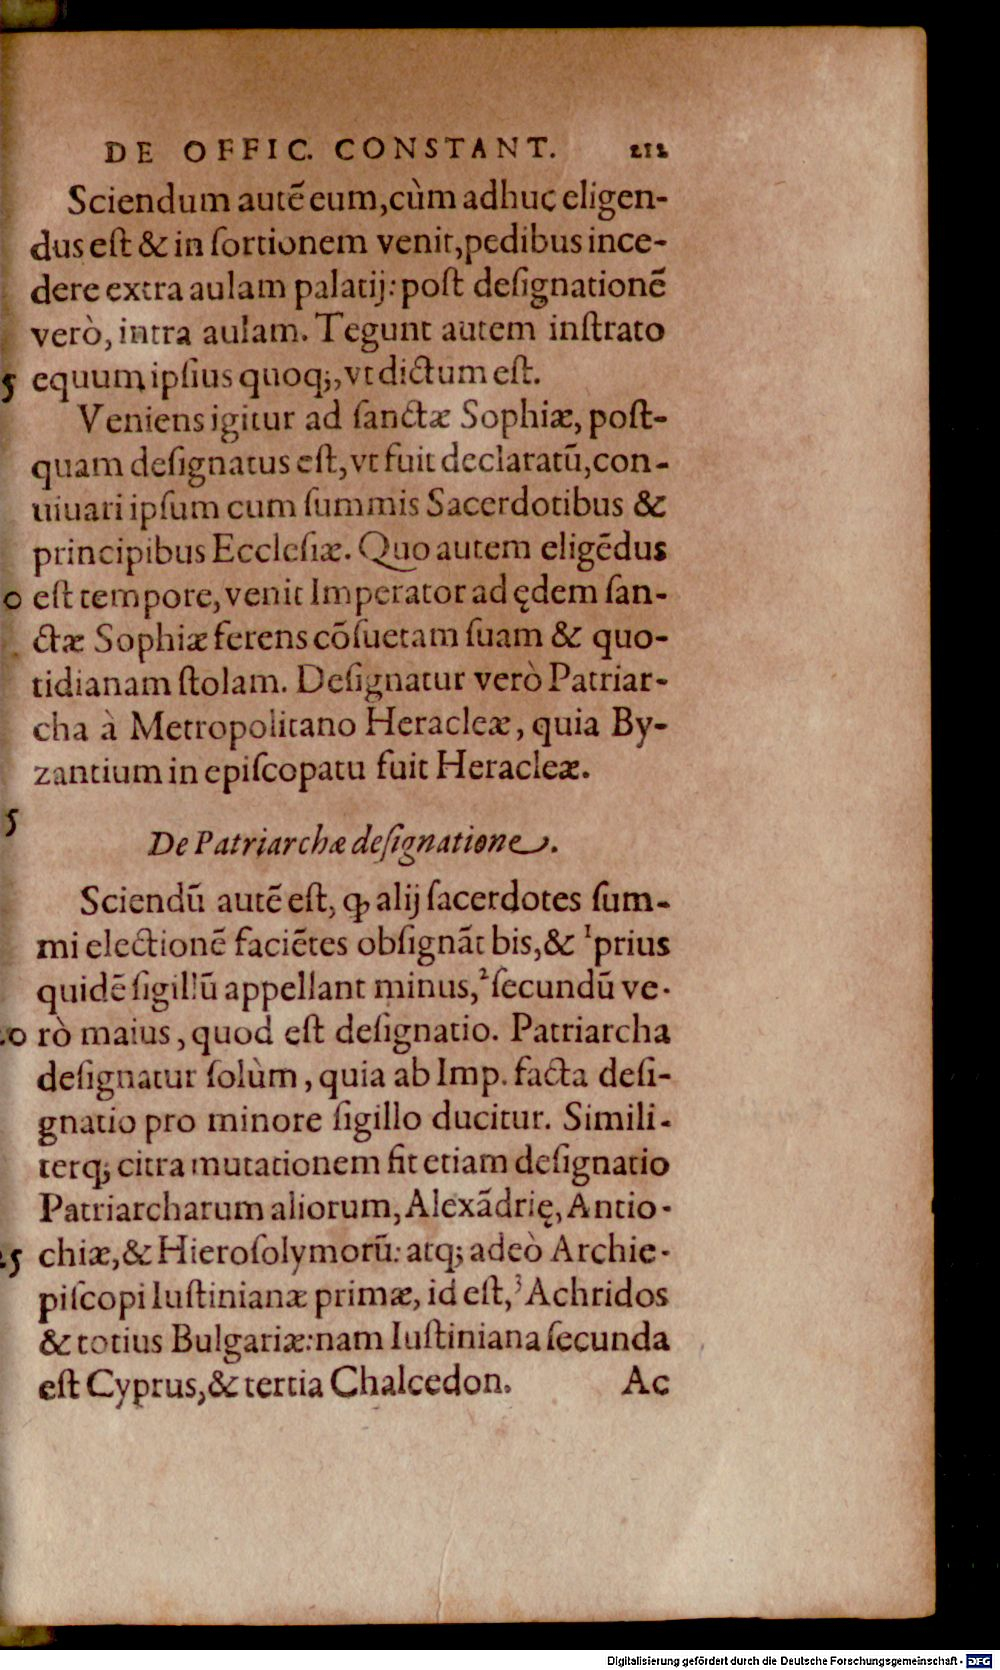 DE OFFIC. CONSTANT. 212
Sciendum autē eum, cùm adhuc eligen-
dus eſt & in ſortionem venit, pedibus ince-
dere extra aulam palatij: poſt deſignationē
verò, intra aulam. Tegunt autem inſtrato
5 equum ipſius quoq;, vt dictum eſt.
Veniens igitur ad ſanctæ Sophiæ, poſt-
quam deſignatus eſt, vt fuit declaratū, con-
uiuari ipſum cum ſummis Sacerdotibus &
principibus Eccleſiæ. Quo autem eligēdus
0 eſt tempore, venit Imperator ad ędem ſan-
ctæ Sophiæ ferens cōſuetam ſuam & quo-
tidianam ſtolam. Deſignatur verò Patriar-
cha à Metropolitano Heracleæ, quia By-
zantium in epiſcopatu fuit Heracleæ.
5
De Patriarchæ deſignatione.
Sciendū autē eſt, ꝙ alij ſacerdotes ſum-
mi electionē faciētes obſignāt bis, & ¹prius
quidē ſigillū appellant minus, ²ſecundū ve-
.0 rò maius, quod eſt deſignatio. Patriarcha
deſignatur ſolùm, quia ab Imp. facta deſi-
gnatio pro minore ſigillo ducitur. Simili-
terq; citra mutationem fit etiam deſignatio
Patriarcharum aliorum, Alexādrię, Antio-
25 chiæ, & Hieroſolymorū: atq; adeò Archie-
piſcopi Iuſtinianæ primæ, id eſt, ³Achridos
& totius Bulgariæ: nam Iuſtiniana ſecunda
eſt Cyprus, & tertia Chalcedon. Ac
Digitalisierung gefördert durch die Deutsche Forschungsgemeinschaft - DFG